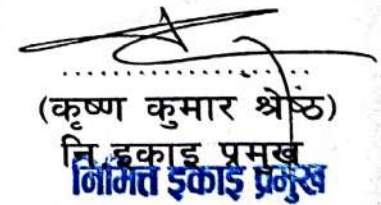 (कृष्ण कुमार श्रेष्ठ)
नि.इकाइ प्रमुख
निमित्त इकाइ प्रमुख